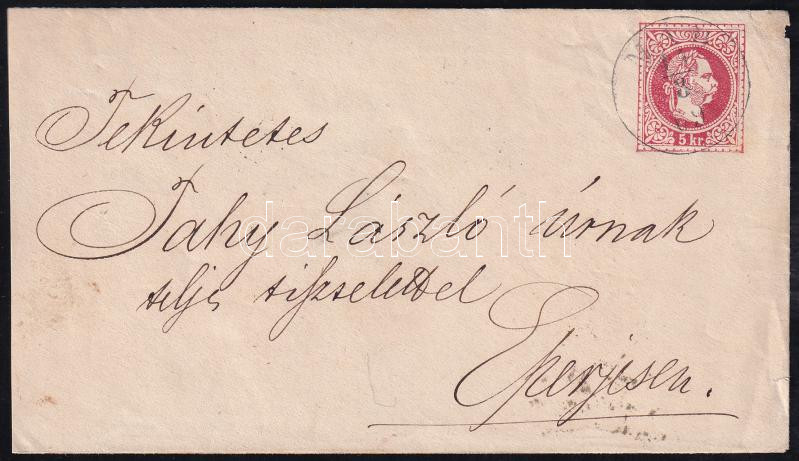 5 kr.
Tekintetes
Tahy László úrnak
telje tisztelettel
Eperjesen.
darabanth